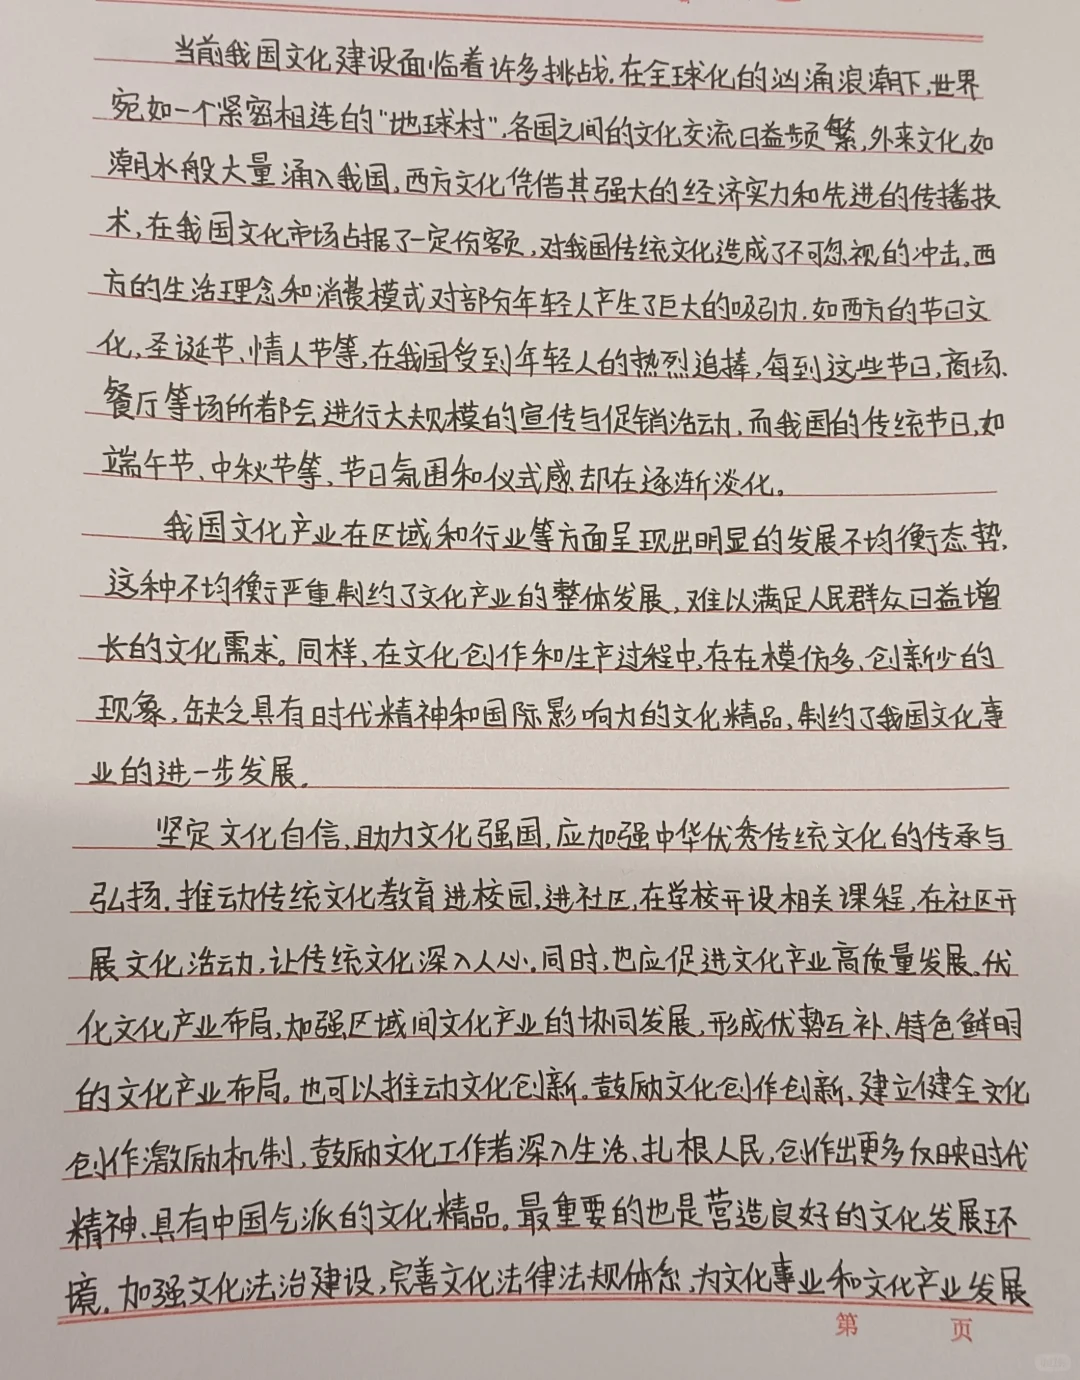 当前我国文化建设面临着许多挑战.在全球化的汹涌浪潮下,世界
宛如一个紧密相连的"地球村",各国之间的文化交流日益频繁,外来文化如
潮水般大量涌入我国,西方文化凭借其强大的经济实力和先进的传播技
术,在我国文化市场占据了一定份额,对我国传统文化造成了不可忽视的冲击。西
方的生活理念和消费模式对部分年轻人产生了巨大的吸引力.如西方的节日文
化,圣诞节、情人节等,在我国受到年轻人的热烈追捧,每到这些节日,商场、
餐厅等场所都会进行大规模的宣传与促销活动,而我国的传统节日,如
端午节、中秋节等,节日氛围和仪式感却在逐渐淡化。
我国文化产业在区域和行业等方面呈现出明显的发展不均衡态势,
这种不均衡严重制约了文化产业的整体发展,难以满足人民群众日益增
长的文化需求。同样,在文化创作和生产过程中,存在模仿多、创新少的
现象,缺乏具有时代精神和国际影响力的文化精品,制约了我国文化事
业的进一步发展.
坚定文化自信,助力文化强国,应加强中华优秀传统文化的传承与
弘扬.推动传统文化教育进校园,进社区,在学校开设相关课程,在社区开
展文化活动,让传统文化深入人心.同时,也应促进文化产业高质量发展.优
化文化产业布局,加强区域间文化产业的协同发展,形成优势互补、特色鲜明
的文化产业布局。也可以推动文化创新.鼓励文化创作创新,建立健全文化
创作激励机制,鼓励文化工作者深入生活、扎根人民,创作出更多反映时代
精神、具有中国气派的文化精品。最重要的也是营造良好的文化发展环
境.加强文化法治建设,完善文化法律法规体系,为文化事业和文化产业发展
第 页